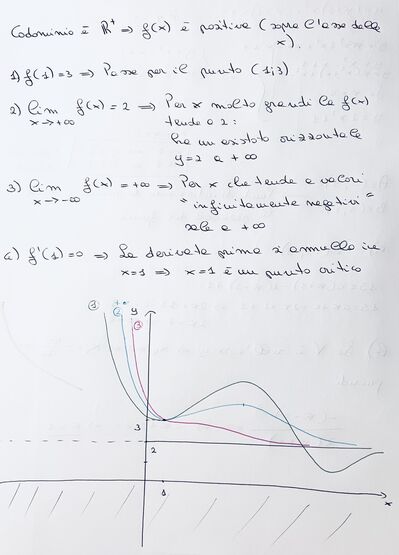 Codominio è ℝ⁺ ⇒ f(x) è positiva (sopra l'asse delle
x).
1) f(1)=3 ⇒ Passa per il punto (1;3)
2) lim f(x)=2 ⇒ Per x molto grandi la f(x)
x→+∞ tende a 2:
ha un asintoto orizzontale
y=2 a +∞
3) lim f(x)=+∞ ⇒ Per x che tende a valori
x→-∞ "infinitamente negativi"
sale a +∞
4) f'(1)=0 ⇒ La derivata prima si annulla in
x=1 ⇒ x=1 è un punto critico
+∞
① ② y
③
3
2
1
x